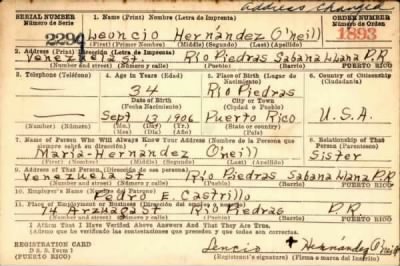 Address Changed
SERIAL NUMBER 1. Name (Print) Nombre (Letra de Imprenta) ORDER NUMBER
Número de Serie Número de Orden
2294 Leoncio Hernández O'neill 1893
(First) (Primer Nombre) (Middle) (Segundo) (Last) (Apellido)
2. Address (Print) Dirección (Letra de Imprenta)
Venezuela St Río Piedras Sabana Llana P.R
(Number and street) (Número y calle) (Town) (Pueblo) PUERTO RICO
3. Telephone (Teléfono) 4. Age in Years (Edad) 5. Place of Birth (Lugar de Nacimiento) 6. Country of Citizenship (Ciudadanía)
34 Río Piedras
Date of Birth City or Town
Fecha de Nacimiento (Ciudad o Pueblo)
Sept 13 1906 Puerto Rico U.S.A.
(Number) (Número) (Mo.) (Day) (Yr.) (State or country)
7. Name of Person Who Will Always Know Your Address (Nombre de la Persona que siempre sabrá su dirección) 8. Relationship of That Person (Parentesco)
María Hernández O'neill Sister
(First) (Nombre) (Middle) (Segundo) (Last) (Apellido)
9. Address of That Person (Dirección de esa persona)
Venezuela St Río Piedras Sabana Llana P.R
(Number and street) (Número y calle) (Town) (Pueblo) PUERTO RICO
10. Employer's Name (Nombre del Patrono)
Pedro E. Castrillo
11. Place of Employment or Business (Dirección del empleo o negocio)
14 Arzuaga St Río Piedras P.R
(Number and street) (Número y calle) (Town) (Pueblo) PUERTO RICO
I Affirm That I Have Verified Above Answers And That They Are True.
(Afirmo que he verificado las contestaciones que preceden y que todas son correctas).
REGISTRATION CARD
D. S. S. Form 1
(PUERTO RICO)
Hernández O'neill
Registrant's signature (firma o marca del Registrado)